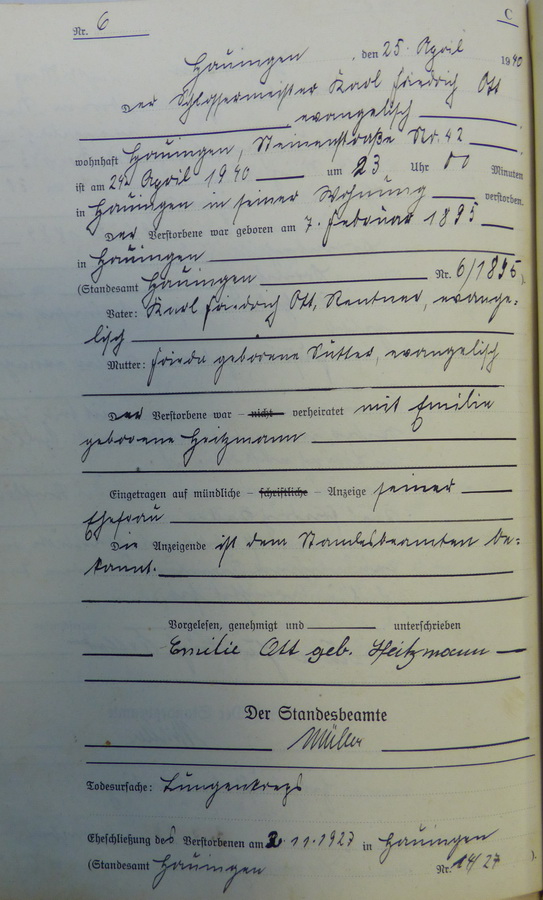 C
Nr. 6
Hauingen, den 25. April 1940
Der Schlossermeister Karl Friedrich Ott
evangelisch
wohnhaft Hauingen, Steinenstraße Nr. 42
ist am 24. April 1940 um 23 Uhr 00 Minuten
in Hauingen in seiner Wohnung verstorben.
Der Verstorbene war geboren am 7. Februar 1895
in Hauingen
(Standesamt Hauingen Nr. 6/1895).
Vater: Karl Friedrich Ott, Rentner, evange-
lisch
Mutter: Frieda geborene Sütter, evangelisch
Der Verstorbene war – nicht – verheiratet mit Emilie
geborene Heitzmann
Eingetragen auf mündliche – schriftliche – Anzeige seiner
Ehefrau
Die Anzeigende ist dem Standesbeamten be-
kannt.
Vorgelesen, genehmigt und unterschrieben
Emilie Ott geb. Heitzmann
Der Standesbeamte
Müller
Todesursache: Lungenkrebs
Eheschließung des Verstorbenen am 2.11.1927 in Hauingen
(Standesamt Hauingen Nr. 14/27).